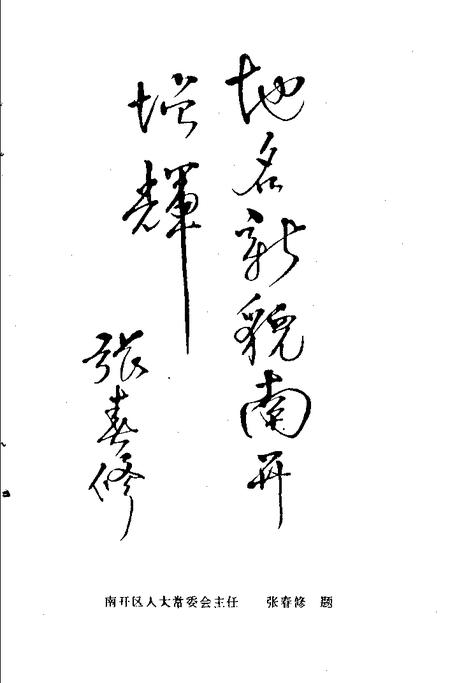 地名新貌南开
增辉
张春修
南开区人大常委会主任 张春修 题